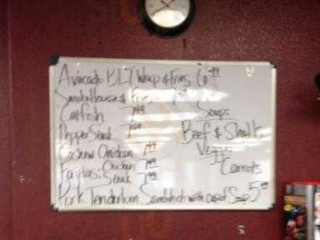 Avocado BLT Wrap & Fries 6.99
Smokehouse & Fries 7.99
Catfish 7.99
Soups
Pepper Steak 7.99
Beef & Shells
Cashew Chicken 7.99
Veggie
Fantasi Chicken 7.99
Carrots
Steak 7.99
Pork Tenderloin Sandwich with cup of Soup 5.99